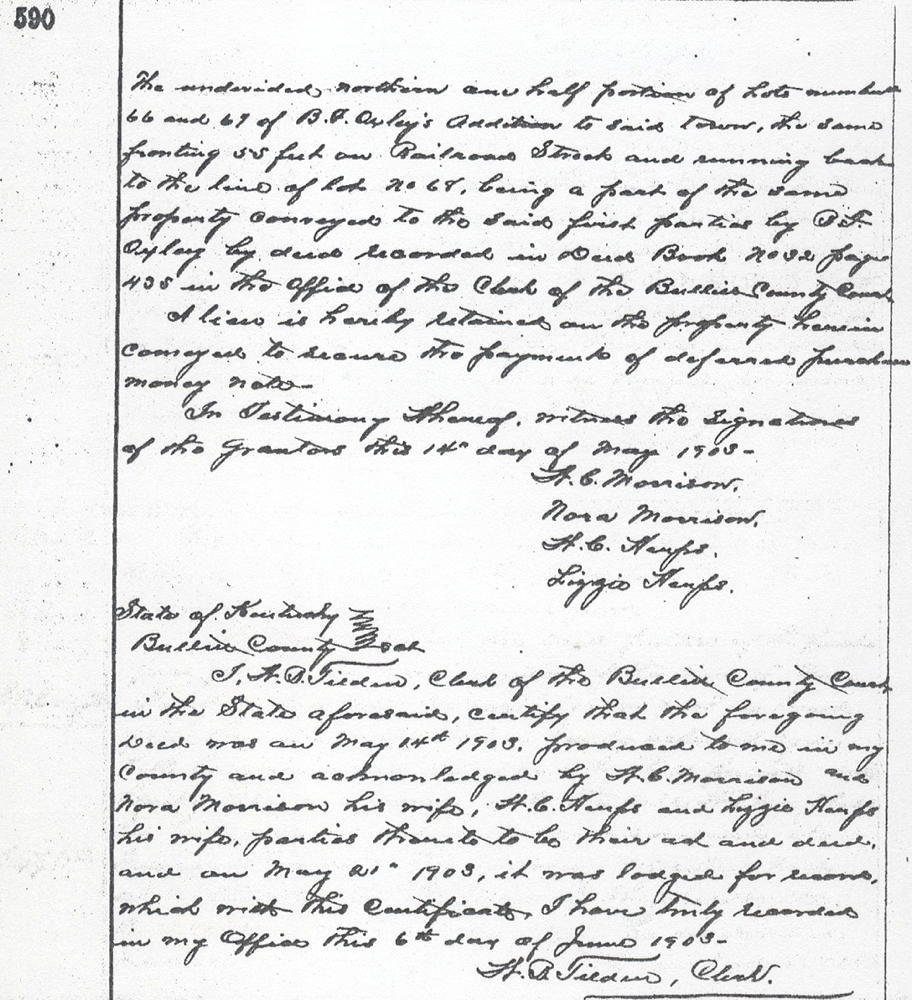 590
The undivided northern one half portion of Lots number
66 and 67 of B.F. Oxley's Addition to said town, the same
fronting 55 feet on Railroad Street and running back
to the line of lot No 68, being a part of the same
property conveyed to the said first parties by B.F.
Oxley by deed recorded in Deed Book No 32 page
435 in the Office of the Clerk of the Bullitt County Court
A lien is hereby retained on the property herein
conveyed to secure the payment of deferred purchase
money note-
In Testimony Whereof, witness the signatures
of the Grantors this 14" day of May 1903-
H.C. Morrison.
Nora Morrison.
H.C. Heups.
Lizzie Heups.
State of Kentucky
Bullitt County Sct
I, H.B. Tilden, Clerk of the Bullitt County Court
in the State aforesaid, certify that the foregoing
Deed was on May 14th 1903, produced to me in my
County and acknowledged by H.C. Morrison and
Nora Morrison his wife, H.C. Heups and Lizzie Heups
his wife, parties thereto to be their act and deed,
and on May 21" 1903, it was lodged for record,
which with this Certificate, I have truly recorded
in my Office this 6th day of June 1903-
H.B. Tilden, Clerk.